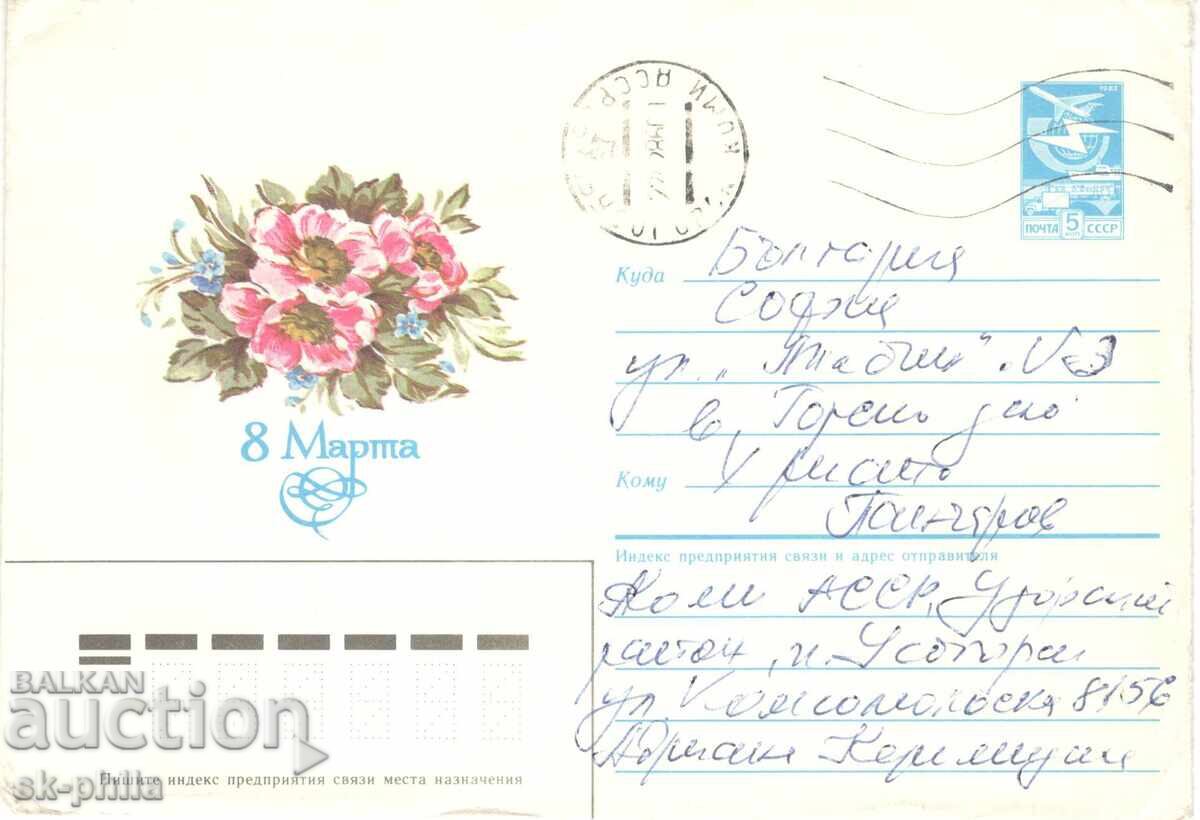 КОМИ АССР
1983
ПОЧТА 5 КОП СССР
8 Марта
Куда България
София
ул. „ "
в. Горско
Кому Христо
Индекс предприятия связи и адрес отправителя
Коми АССР, Удорский
район, п. Усогорск
ул Комсомольская 8/56
Адриан
BALKAN
auction
Пишите индекс предприятия связи места назначения
sk-philla